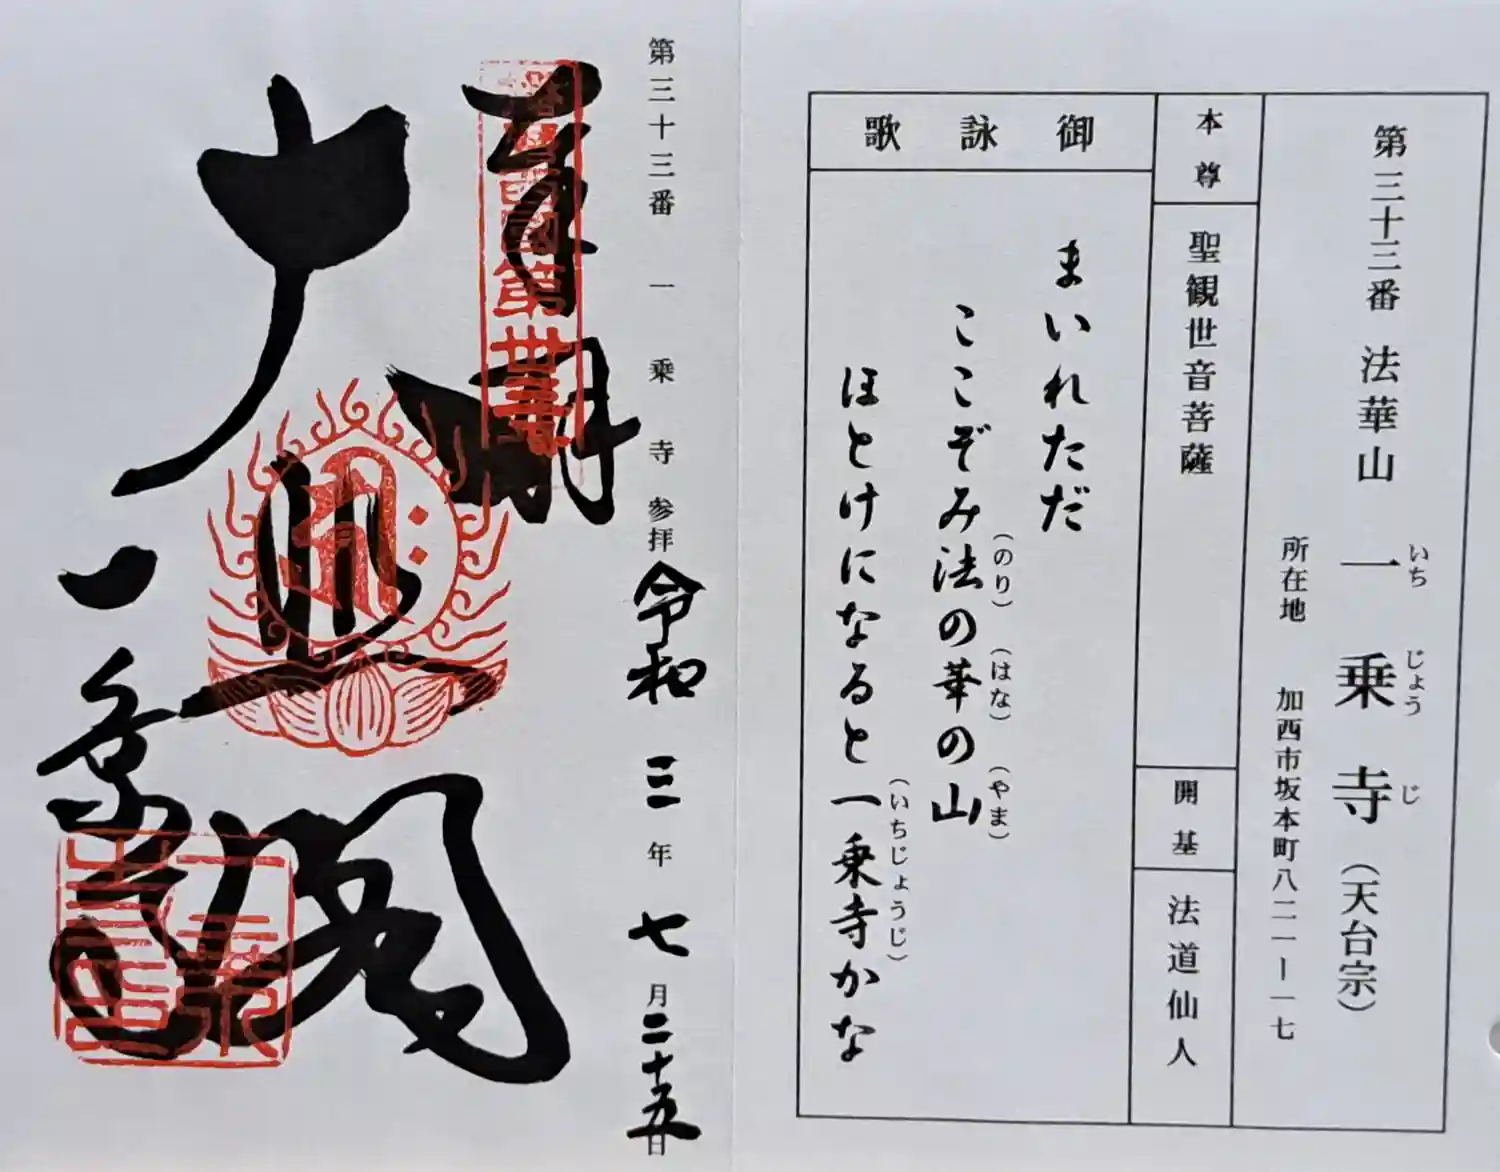 第三十三番 法華山 一乗寺（天台宗）
いち じょう じ
所在地 加西市坂本町八二一ー一七
本尊
聖観世音菩薩
開基
法道仙人
御詠歌
まいれただ
ここぞみ法の華の山
（のり）（はな）（やま）
ほとけになると一乗寺かな
（いちじょうじ）
第三十三番 一乗寺参拝 令和三年七月二十五日
奉拝
大悲閣
一乗寺